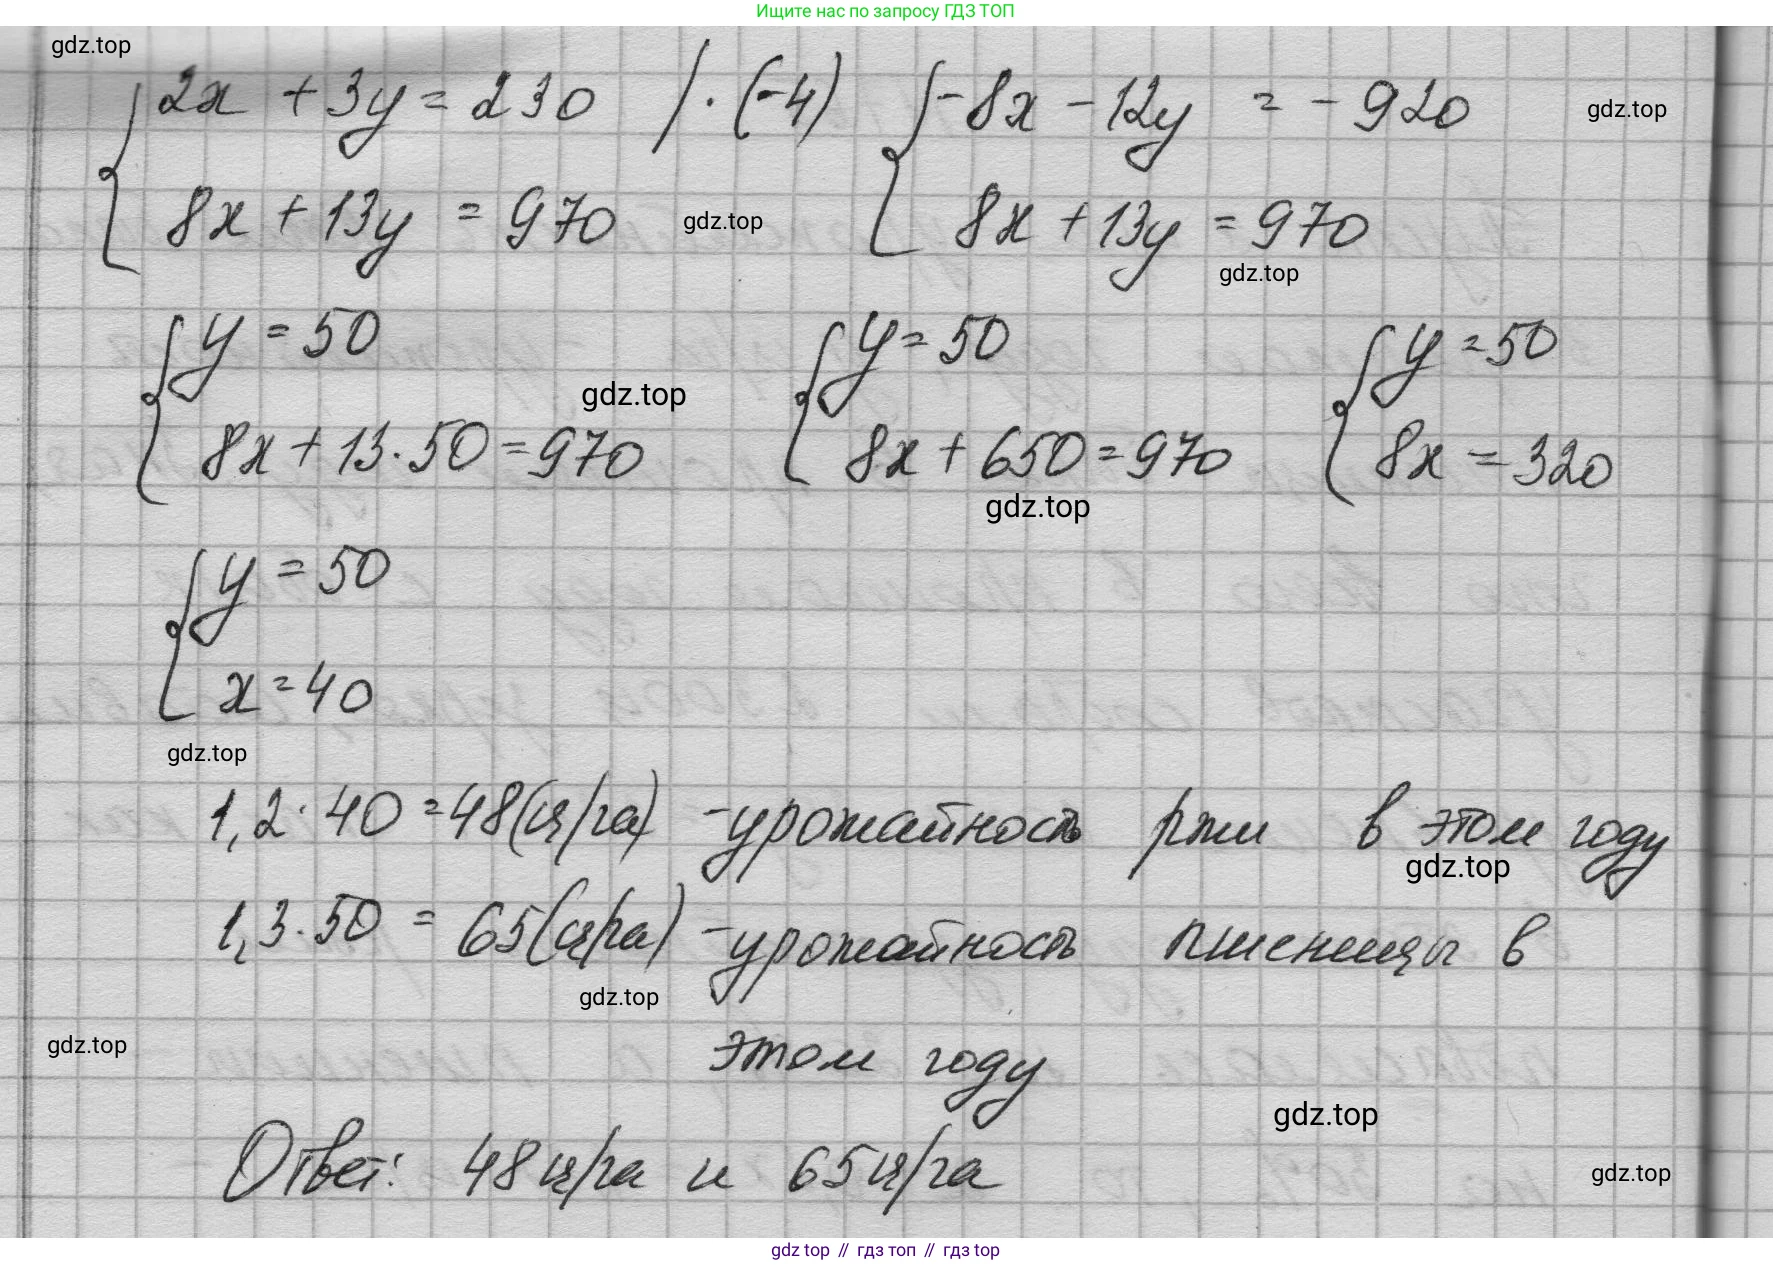 Ищите нас по запросу ГДЗ ТОП
gdz.top
2x + 3y = 230 / · (-4)
-8x - 12y = - 920
gdz.top
8x + 13y = 970
gdz.top
8x + 13y = 970
gdz.top
y = 50
y = 50
y = 50
gdz.top
8x + 13 · 50 = 970
8x + 650 = 970
8x = 320
gdz.top
y = 50
x = 40
gdz.top
1,2 · 40 = 48 (ц/га) - урожайность ржи в этом году
gdz.top
1,3 · 50 = 65 (ц/га) - урожайность пшеницы в
gdz.top
этом году
gdz.top
gdz.top
Ответ: 48 ц/га и 65 ц/га
gdz.top
gdz top // гдз топ // гдз top